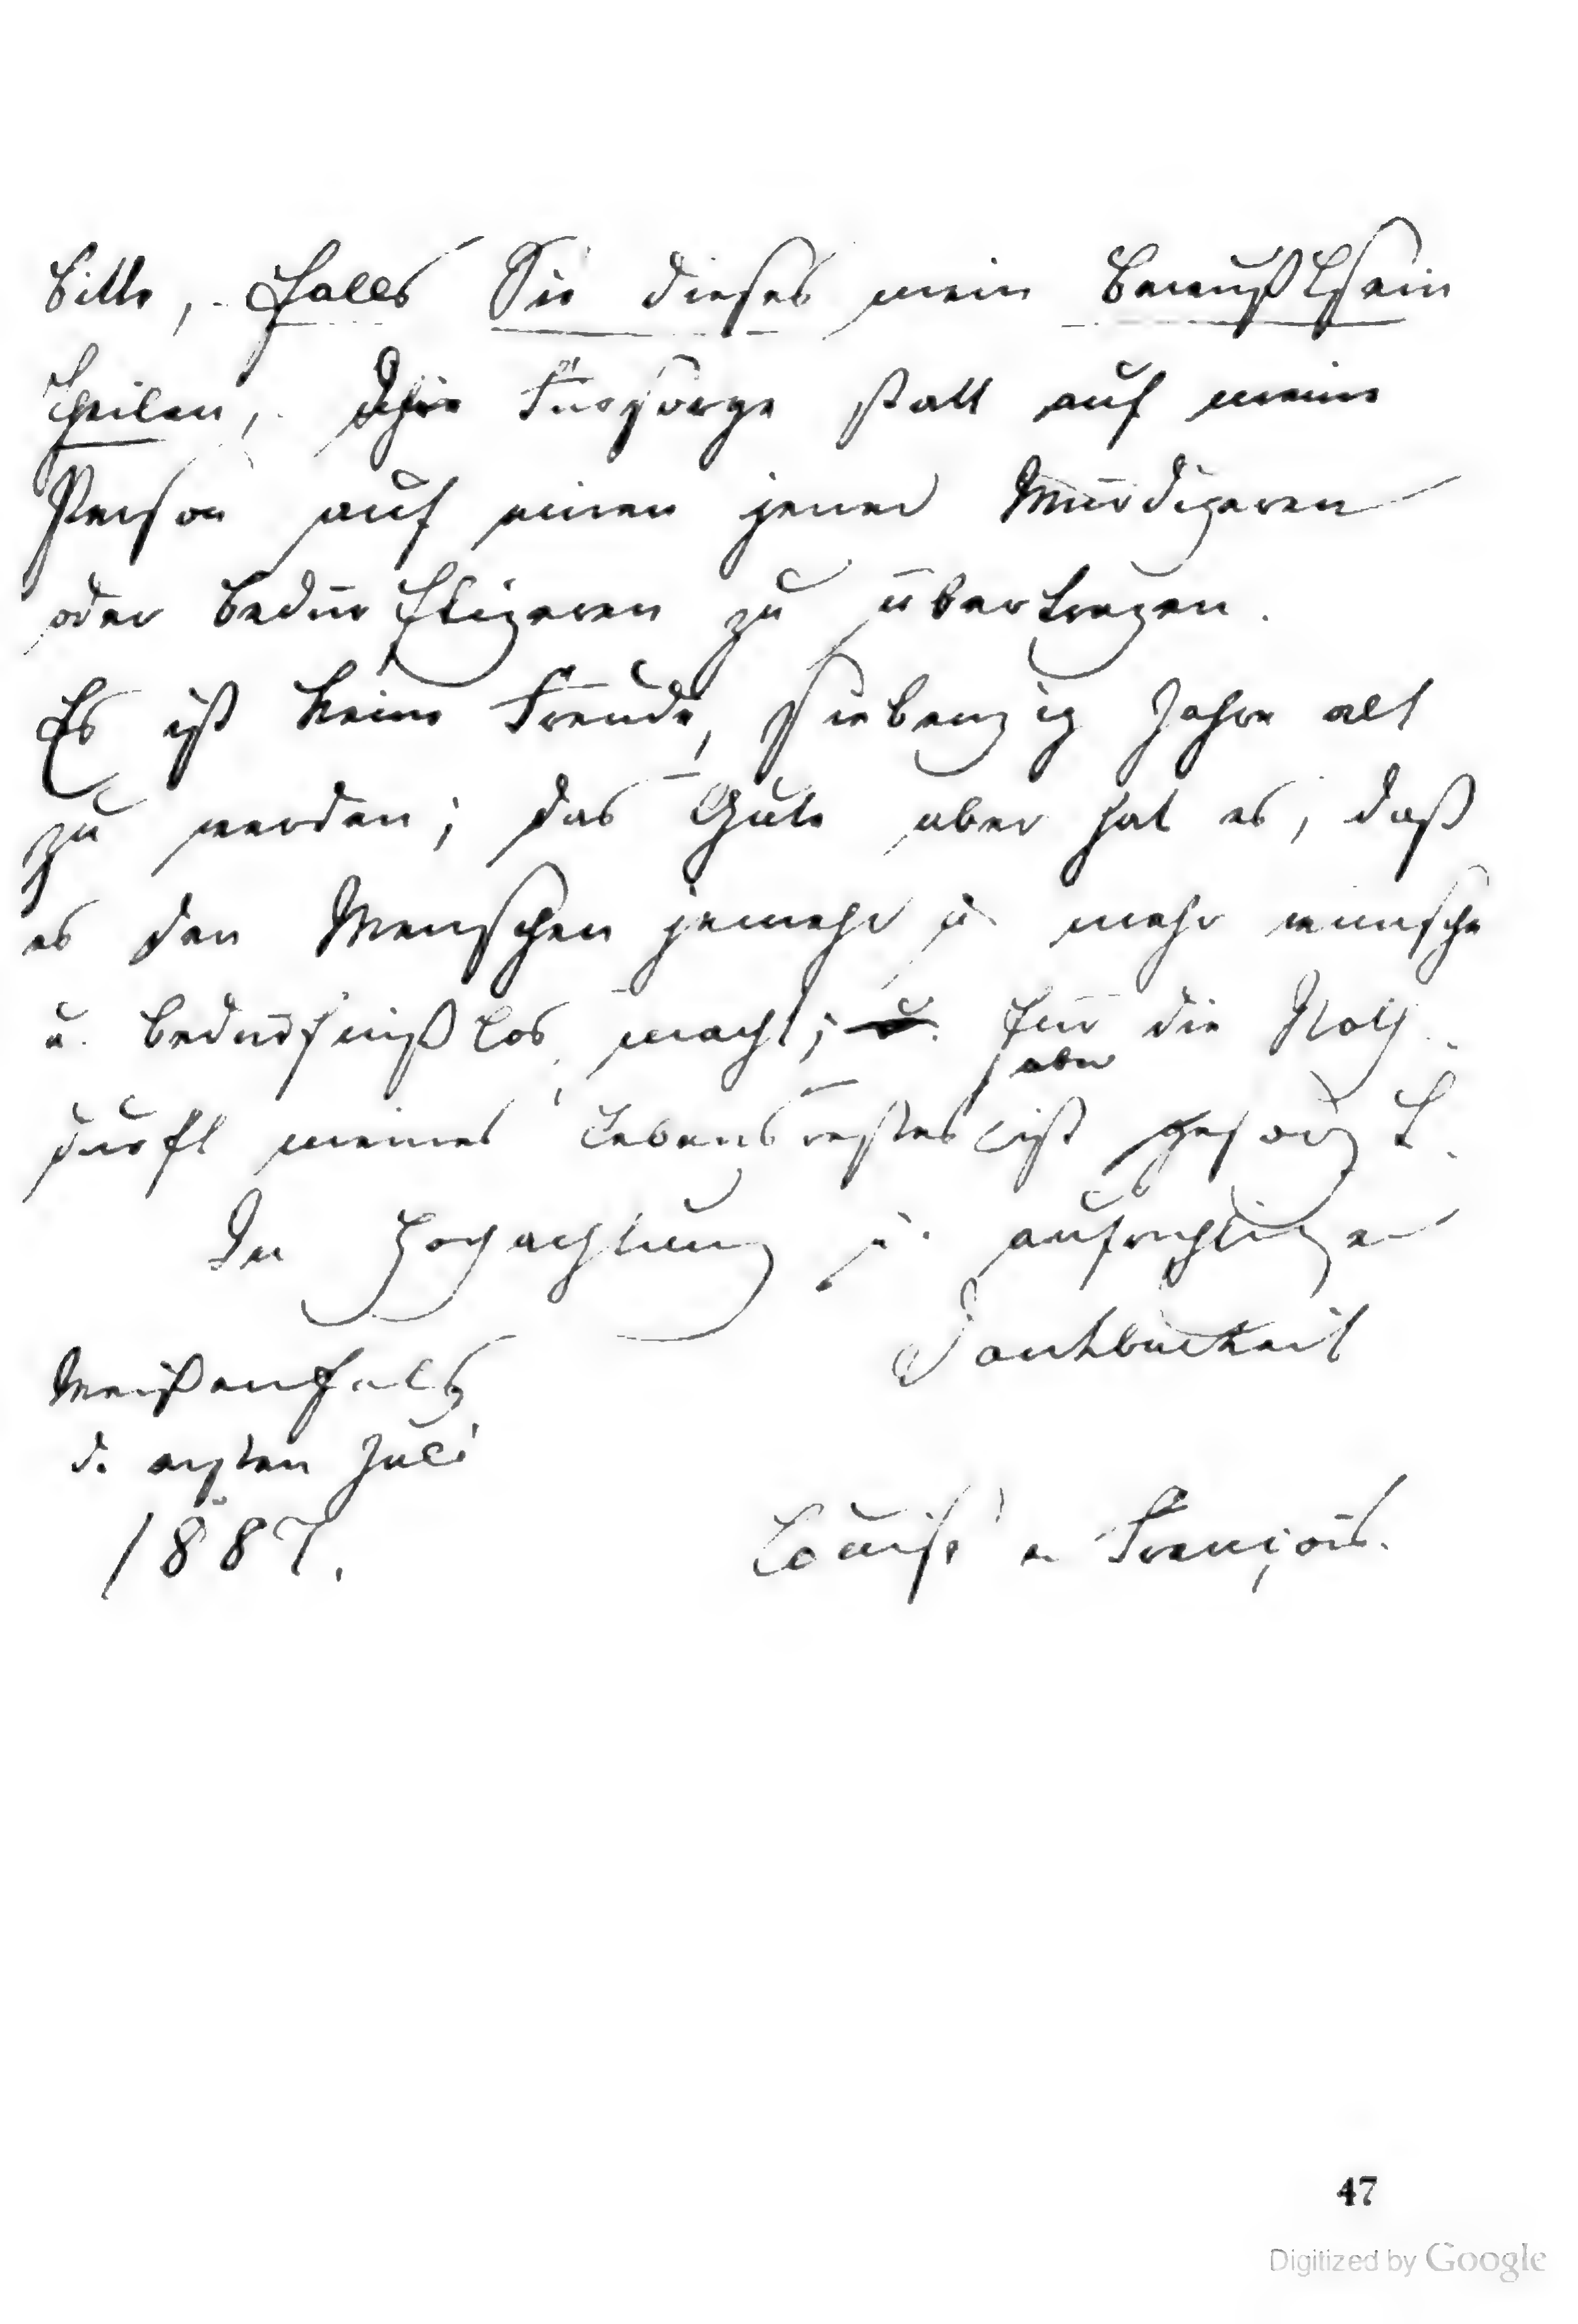 bitte, falls Sie dieses mein Bewußtsein
theilen, Ihre Fürsorge statt auf meine
Person auf einen jener Würdigeren
oder Bedürftigeren zu übertragen.
Es ist keine Freude, siebenzig Jahre alt
zu werden; das Gute aber hat es, daß
es den Menschen jemehr u. mehr wunsch
u. bedürfnißlos macht; u. für die Noth
aber
durft meines Lebensrestes ist gesorgt.
In Hochachtung u. aufrichtiger
Dankbarkeit
Weißenfels
d. ersten Juli
1887.
Louise v François.
47
Digitized by Google